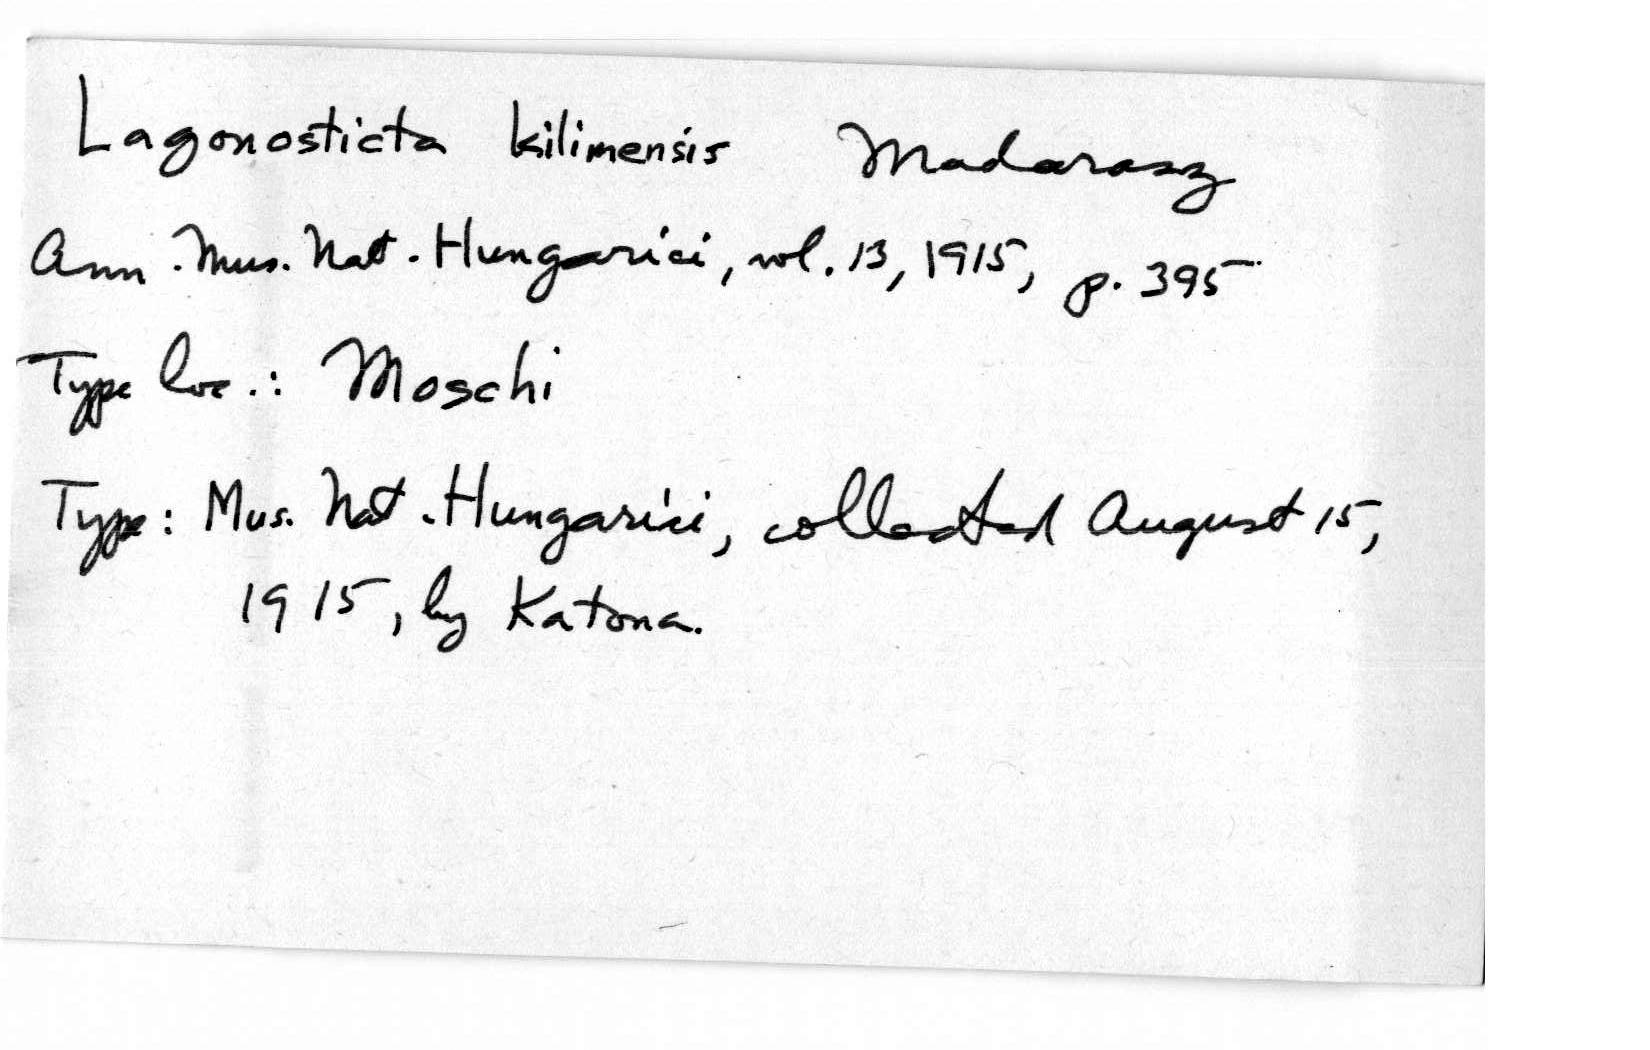 Lagonosticta kilimensis Madarasz
Ann. Mus. Nat. Hungarici, vol. 13, 1915, p. 395
Type loc.: Moschi
Type: Mus. Nat. Hungarici, collected August 15,
1915, by Katona.